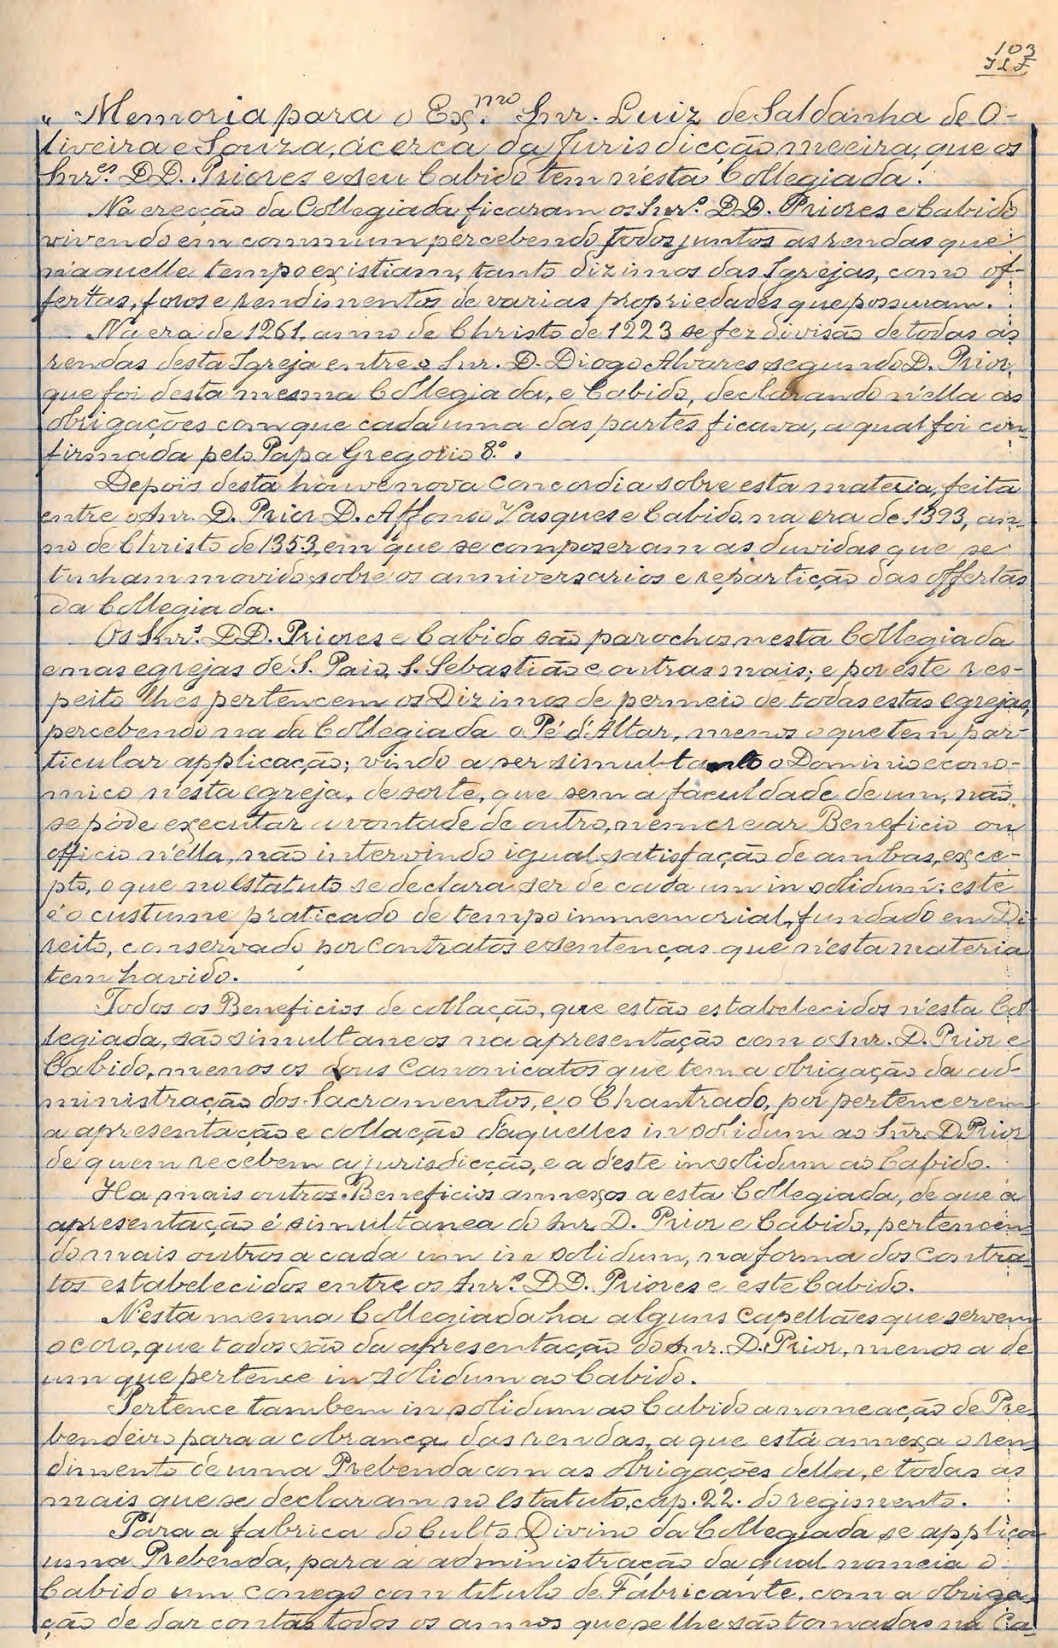 103
" Memoria para o Exmo. Snr. Luiz de Saldanha de O-
liveira e Souza, ácerca da Jurisdicção meeira, que os
Snres. DD. Priores e seu Cabido tem n'esta Collegiada.
Na erecção da Collegiada ficaram os Snrs. DD. Priores e Cabido
vivendo em commum percebendo todos juntos as rendas que
n'aquelle tempo existiam, tanto dizimos das Igrejas, como of-
fertas, foros e rendimentos de varias propriedades que possuiam.
Na era de 1261, anno de Christo de 1223 se fez divisão de todas as
rendas desta Igreja entre o Snr. D. Diogo Alvares segundo D. Prior,
que foi desta mesma Collegiada, e Cabido, declarando n'ella as
obrigações com que cada uma das partes ficava, a qual foi con-
firmada pelo Papa Gregorio 8.º.
Depois desta houve nova concordia sobre esta materia, feita
entre o Snr. D. Prior D. Affonso Vasques e Cabido, na era de 1393, an-
no de Christo de 1353, em que se composeram as duvidas que se
tinham movido sobre os anniversarios e repartição das offertas
da Collegiada.
Os Snrs. DD. Priores e Cabido são parochos nesta Collegiada
e nas egrejas de S. Paio, S. Sebastião e outras mais; e por este res-
peito lhes pertencem os Dizimos de permeio de todas estas egrejas,
percebendo na da Collegiada o Pé d'Altar, menos o que tem par-
ticular applicação; vindo a ser simultaneo o Dominio econo-
mico n'esta egreja, de sorte, que sem a faculdade de um, não
se póde executar a vontade de outro, nem crear Beneficio ou
officio n'ella, não intervindo igual satisfação de ambas, exce-
pto, o que no Estatuto se declara ser de cada um in solidum: este
é o custume praticado de tempo immemorial, fundado em Di-
reito, conservado por contratos e sentenças que n'esta materia
tem havido.
Todos os Beneficios de collação, que estão estabelecidos n'esta Col-
legiada, são simultaneos na apresentação com o Snr. D. Prior e
Cabido, menos os dous Canonicatos que tem a obrigação da ad-
ministração dos Sacramentos, e o Chantrado, por pertencerem
a apresentação e collação daquelles in solidum ao Snr. D. Prior
de quem recebem a jurisdicção, e a deste in solidum ao Cabido.
Ha mais outros Beneficios annexos a esta Collegiada, de que a
apresentação é simultanea do Snr. D. Prior e Cabido, pertencen-
do mais outros a cada um in solidum, na forma dos contra-
tos estabelecidos entre os Snrs. DD. Priores e este Cabido.
Nesta mesma Collegiada ha alguns capellães que servem
o coro, que todos são da apresentação do Snr. D. Prior, menos a de
um que pertence in solidum ao Cabido.
Pertence tambem in solidum ao Cabido a nomeação de Pre-
bendeiro para a cobrança das rendas, a que está annexa o ren-
dimento de uma Prebenda com as obrigações della, e todas as
mais que se declaram no Estatuto, cap. 22. do regimento.
Para a fabrica do Culto Divino da Collegiada se applica
uma Prebenda, para a administração da qual nomeia o
Cabido um conego com titulo de Fabricante, com a obriga-
ção de dar contas todos os annos que se lhe são tomadas na Ca-